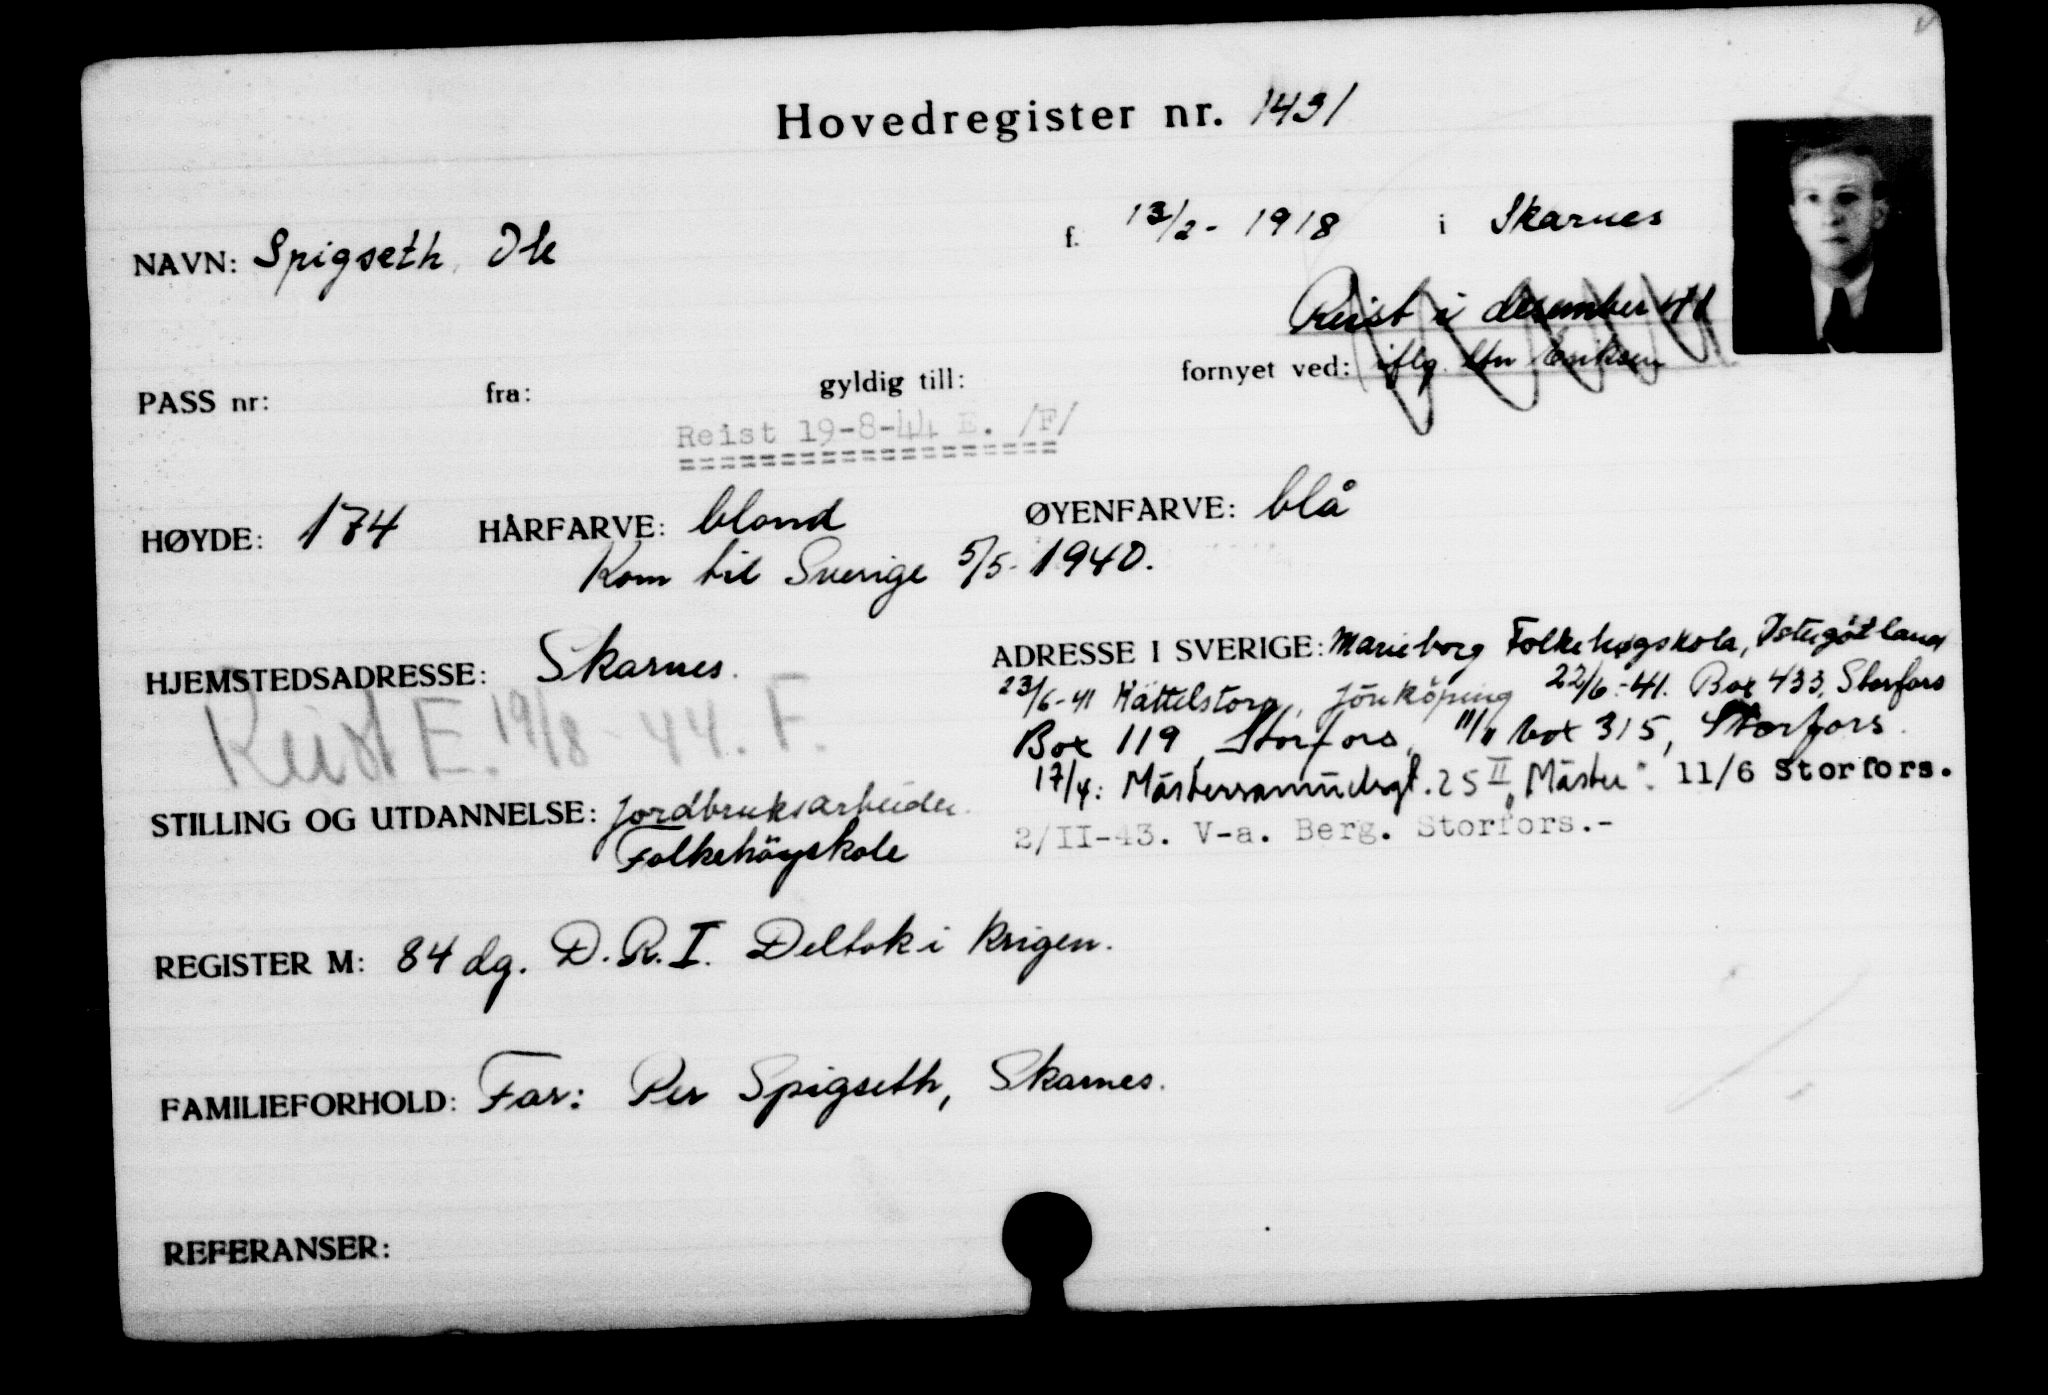 Hovedregister nr. 1431
NAVN: Spigseth, Ole f. 13/2 - 1918 i Skarnes
Reist i desember 41
PASS nr: fra: gyldig till: fornyet ved: iflg. Eriksen
Reist 19-8-44 E. /F/
===================
HØYDE: 174 HÅRFARVE: blond ØYENFARVE: blå
Kom til Sverige 5/5- 1940.
HJEMSTEDSADRESSE: Skarnes. ADRESSE I SVERIGE: Marieborg Folkehøgskola, Østergötland
23/6-41 Hättelstorp, Jönköping 22/6.-41. Box 433, Storfors
Box 119, Storfors, 11/11 box 315, Storfors.
Reist E. 19/8 - 44. F.
17/4: 25 II, 11/6 Storfors.
STILLING OG UTDANNELSE: Jordbruksarbeider.
2/II-43. V-a. Berg. Storfors.-
Folkehöyskole
REGISTER M: 84 dg. D.R.I. Deltok i krigen.
FAMILIEFORHOLD: Far: Per Spigseth, Skarnes.
REFERANSER: